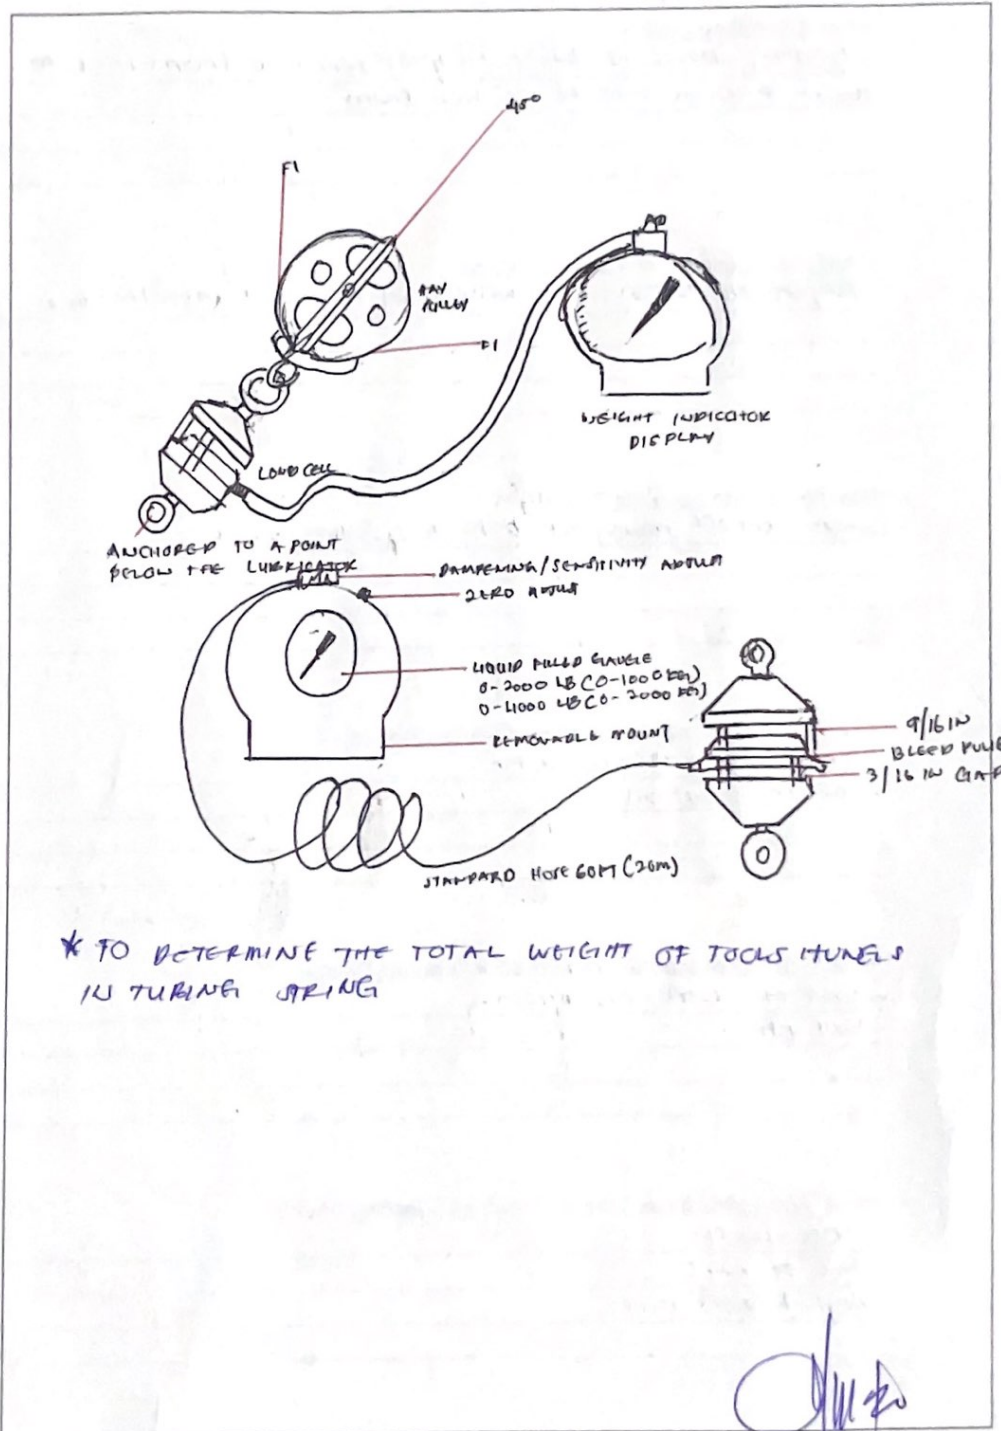 45°
F1
HAY
PULLEY
F1
WEIGHT INDICATOR
DISPLAY
LOAD CELL
ANCHORED TO A POINT
BELOW THE LUBRICATOR
DAMPENING/SENSITIVITY ADJUST
ZERO ADJUST
LIQUID FILLED GAUGE
0-2000 LB (0-1000 KG)
0-4000 LB (0-2000 KG)
REMOVABLE MOUNT
9/16 IN
BLEED
3/16 IN GAP
STANDARD HOSE 60FT (20m)
* TO DETERMINE THE TOTAL WEIGHT OF TOOLS
IN TUBING STRING